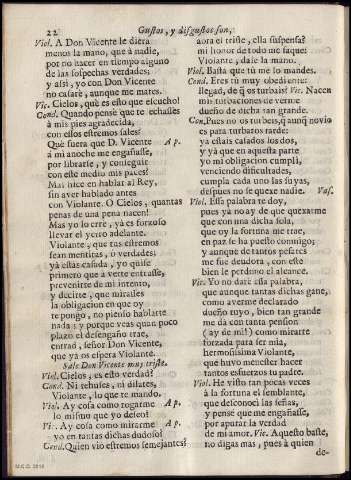 22
Gustos, y disgustos son,
Viol. A Don Vicente le diera
menos la mano, que à nadie,
por no hacer en tiempo alguno
de las sospechas verdades;
y assi, yo con Don Vicente
no casarè, aunque me mates.
Vic. Cielos, què es esto que escucho!
Cond. Quando pensè que te echasses
à mis pies agradecida,
con essos estremos sales?
Què fuera que D. Vicente A p.
à mi anoche me engañasse,
por librarse, y conseguir
con este medio sus paces!
Mal hice en hablar al Rey,
sin aver hablado antes
con Violante. O Cielos, quantas
penas de una pena nacen!
Mas yo lo errè, ya es forzoso
llevar el yerro adelante.
Violante, que tus estremos
sean mentiras, ò verdades:
yà estàs casada, yo quise
primero que à verte entrasse,
prevenirte de mi intento,
y decirte, que mirasles
la obligacion en que oy
te pongo, no pienso hablarte
nada; y porque veas quan poco
plazo el desengaño trae,
entrad, señor Don Vicente,
que yà os espera Violante.
Sale Don Vicente muy triste.
Viol. Cielos, es esto verdad?
Cond. Ni rehuses, ni dilates,
Violante, lo que te mando.
Viol. Ay cosa como rogarme A p.
lo mismo que yo deseo!
Vic. Ay cosa como mirarme A p.
yo en tantas dichas dudoso!
Cond. Quien viò estremos semejantes?
aora el triste, ella suspensa?
mi honor de todo me saque:
Violante, dale la mano.
Viol. Basta que tù me lo mandes.
Cond. Eres tù muy obediente:
llegad, de q os turbais? Vic. Nacen
mis turbaciones de verme
dueño de dicha tan grande.
Con. Pues no os turbeis, q aunq novio
es para turbaros tarde:
ya estais casados los dos,
y yà que en aquesta parte
yo mi obligacion cumplì,
venciendo dificultades,
cumpla cada uno las suyas,
despues no se quexe nadie. Vas.
Viol. Essa palabra te doy,
pues ya no ay de que quexarme
que con una dicha sola,
que oy la fortuna me trae,
en paz se ha puesto conmigo;
y aunque de tantos pesares
me fue deudora, con este
bien le perdono el alcance.
Vic. Yo no darè essa palabra,
que aunque tantas dichas gane,
como averme declarado
dueño tuyo, bien tan grande
me dà con tanta pension
(ay de mi!) como mirarte
forzada para ser mia,
hermosissima Violante,
que huvo menester hacer
tantos esfuerzos tu padre.
Viol. He visto tan pocas veces
à la fortuna el semblante,
que desconocì las señas,
y pensè que me engañasse,
por apurar la verdad
de mi amor. Vic. Aquesso baste,
no digas mas, pues à quien
de-
M.C.D. 2018